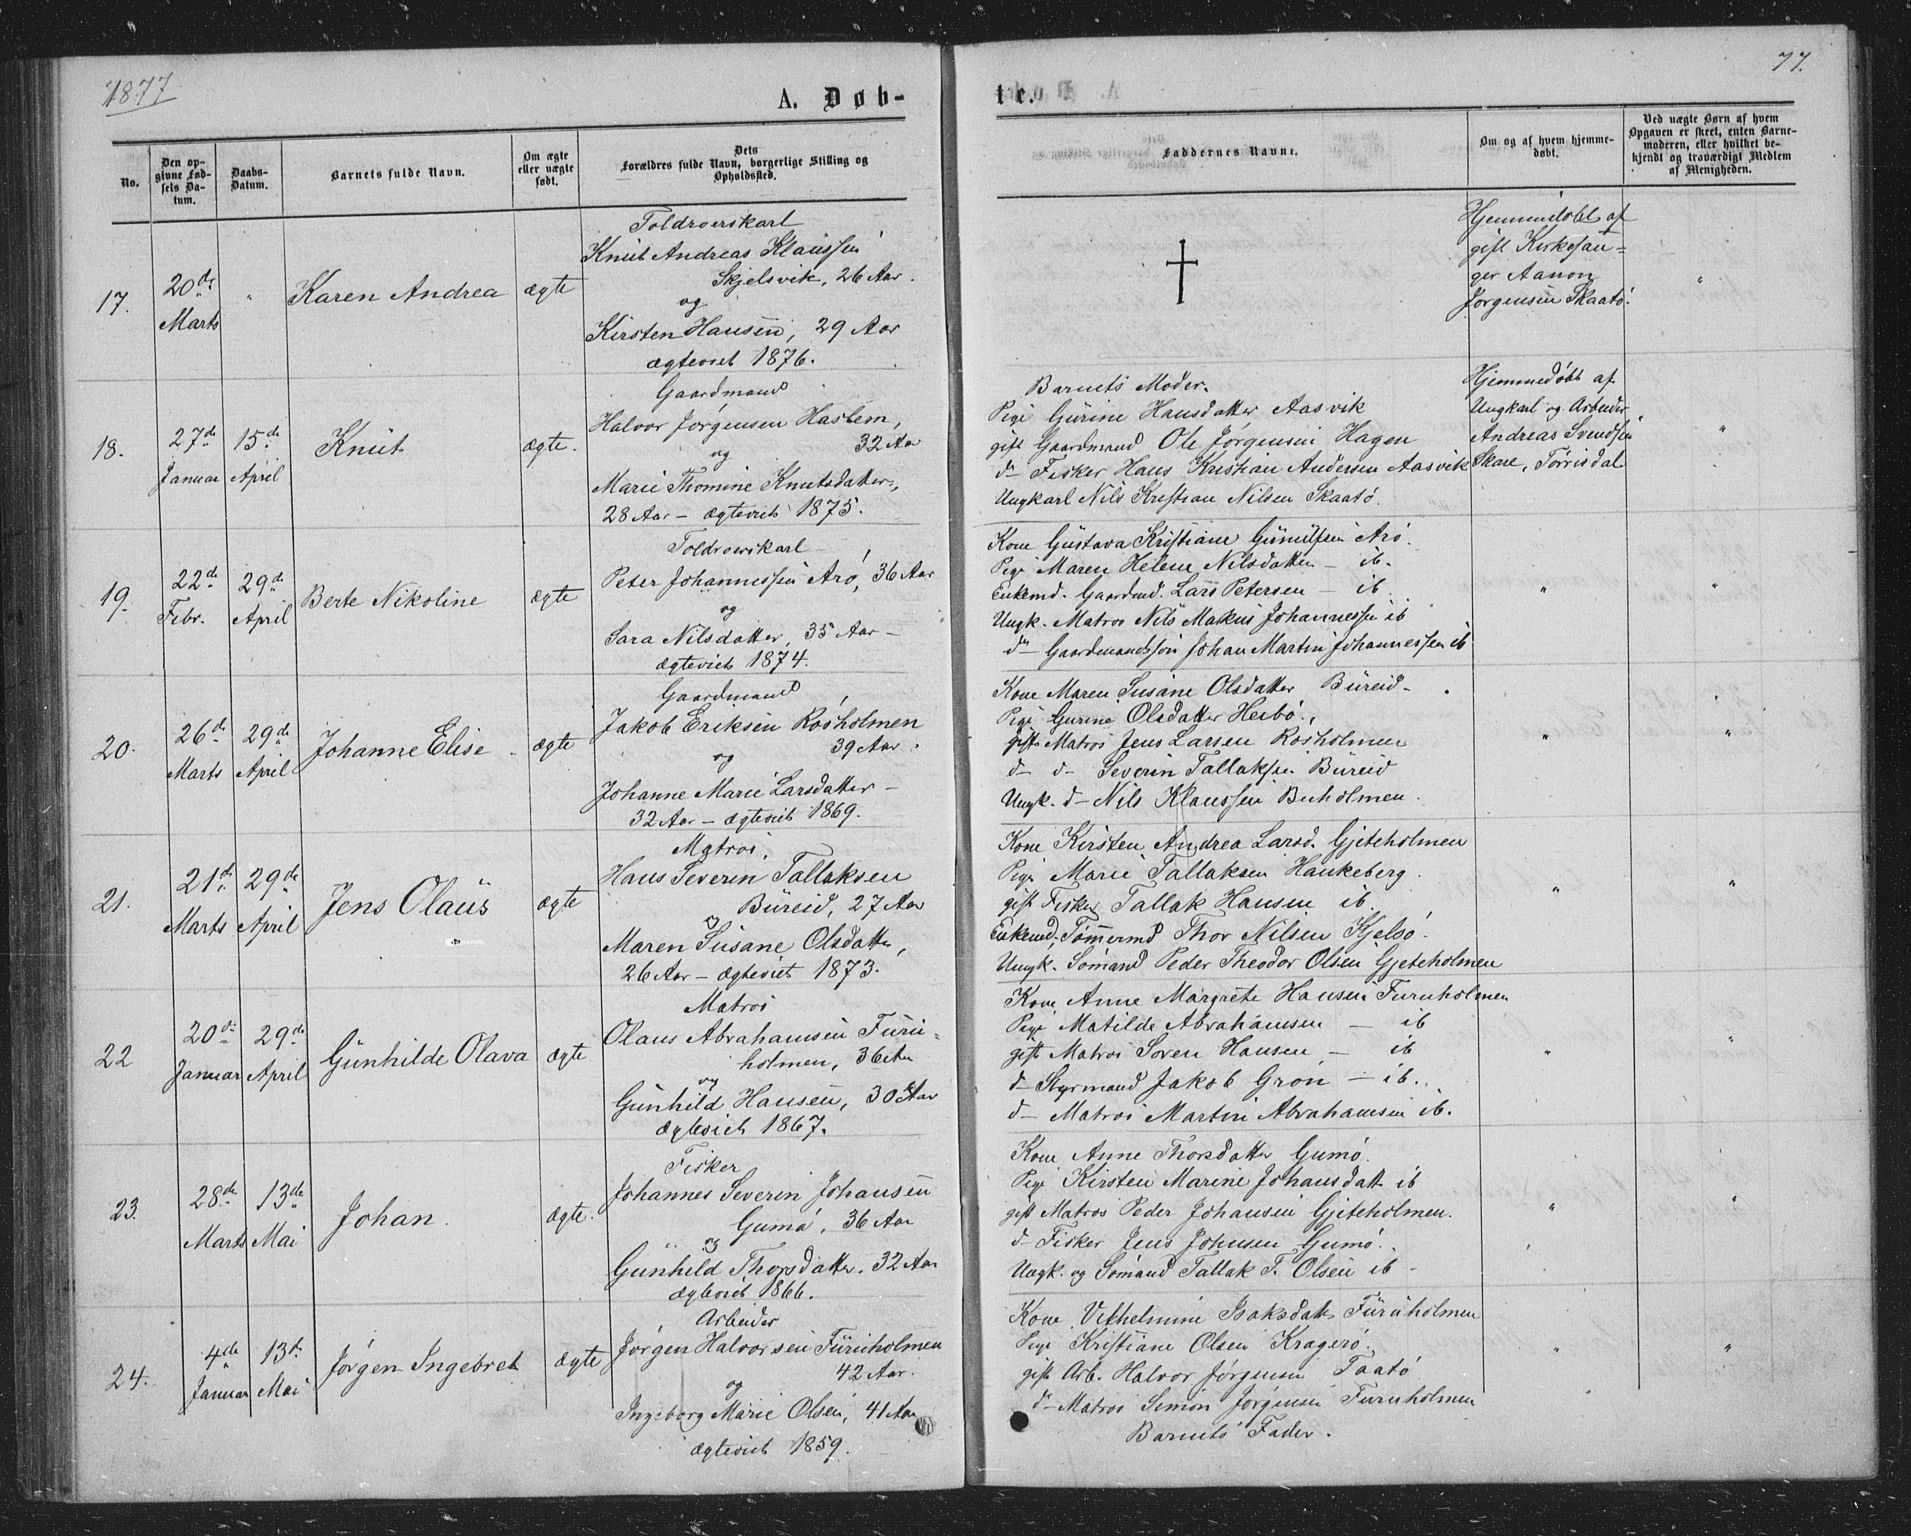 1877
77.
A. Døb-
te.
No.
Den op-
givne Fød-
sels Da-
tum.
Daabs-
Datum.
Barnets fulde Navn.
Om ægte
eller uægte
født.
Dets
Forældres fulde Navn, borgerlige Stilling og
Opholdssted.
Faddernes Navne.
Om og af hvem hjemme-
døbt.
Ved uægte Børn af hvem
Opgaven er skeet, enten Barne-
moderen, eller hvilket be-
kjendt og troværdigt Medlem
af Menigheden.
17.
20de
Marts
"
Karen Andrea
ægte
Toldroerskarl
Knut Andreas Klaussen
Skjelsvik, 26 Aar.
og
Kirsten Hansen, 29 Aar
ægteviet 1876.
†
Hjemmedøbt af
gift Kirkesan-
ger Aanon
Jørgensen Skaatø.
"
18.
27de
Januar
15de
April
Knut
ægte.
Gaardmand
Halvor Jørgensen Haslem,
32 Aar
og
Marie Thomine Knutsdatter,
28 Aar – ægteviet 1875.
Barnets Moder.
Pige Gurine Hansdatter Aasvik
gift Gaardmand Ole Jørgensen Hagen
do Fisker Hans Kristian Andersen Aasvik
Ungkarl Nils Kristian Nilsen Skaatø
Hjemmedøbt af
Ungkarl og Arbeider
Andreas Svendsen
Skare, Tørrisdal
"
19.
22de
Febr.
29de
April
Berte Nikoline
ægte
Toldroerskarl
Peter Johannessen Arø, 36 Aar
og
Sara Nilsdatter, 35 Aar –
ægteviet 1874.
Kone Gustava Kristiane Gunulfsen Arø.
Pige Maren Helene Nilsdatter – ib.
Enkemd. Gaardmd. Lars Petersen – ib.
Ungk. Matros Nils Makus Johannessen ib
do Gaardmandssøn Johan Martin Johannessen ib
"
"
20.
26de
Marts
29de
April
Johanne Elise
ægte
Gaardmand
Jakob Eriksen Rosholmen
39 Aar.
og
Johanne Marie Larsdatter –
32 Aar – ægteviet 1869.
Kone Maren Susane Olsdatter Büreid –
Pige Gurine Olsdatter Heibø.,
gift Matros Jens Larsen Rosholmen
d – d – Severin Tallaksen Büreid
Ungk. d – Nils Klaussen Buholmen.
"
"
21.
21de
Marts
29de
April
Jens Olaüs
ægte
Matros.
Hans Severin Tallaksen
Büreid, 27 Aar
og
Maren Susane Olsdatter,
26 Aar – ægteviet 1873.
Kone Kirsten Andrea Larsd. Gjeteholmen
Pige Marie Tallaksen Haukeberg.
gift Fisker Tallak Hansen ib.
Enkemd. Tømmermd Thor Nilsen Kjelsø.
Ungk. Sømand Peder Theodor Olsen Gjeteholmen
"
"
22
20de
Januar
29de
April
Günhilde Olava
ægte
Matros
Olaus Abrahamsen Furu-
holmen, 36 Aar
og
Günhild Hansen, 30 Aar
ægteviet 1867.
Kone Anne Margrete Hansen Furuholmen
Pige Matilde Abrahamsen – ib
gift Matros Soren Hansen – ib
d – Styrmand Jakob Grøn – ib.
d – Matros Martin Abrahamsen ib.
"
"
23.
28de
Marts
13de
Mai
Johan.
ægte.
Fisker
Johannes Severin Johansen
Gumø, 36 Aar
og
Günhild Thorsdatter, 32 Aar
ægteviet 1866.
Kone Anne Thorsdatter Gumø.
Pige Kirsten Marine Johansdatt ib
gift Matros Peder Johansen Gjeteholmen.
d – Fisker Jens Johnsen Gumø.
Ungk. og Sømand Tallak T. Olsen ib –
"
"
24.
4de
Januar
13de
Mai
Jørgen Ingebret
ægte
Arbeider
Jørgen Halvorsen Füruholmen
42 Aar.
og
Ingeborg Marie Olsen, 41 Aar
ægteviet 1859.
Kone Vilhelmine Isaksdatt Füruholmen
Pige Kristiane Olsen Kragerø.
gift Arb. Halvor Jørgensen Taatø
do – Matros Simon Jørgensen Furuholmen
Barnets Fader.
"
"